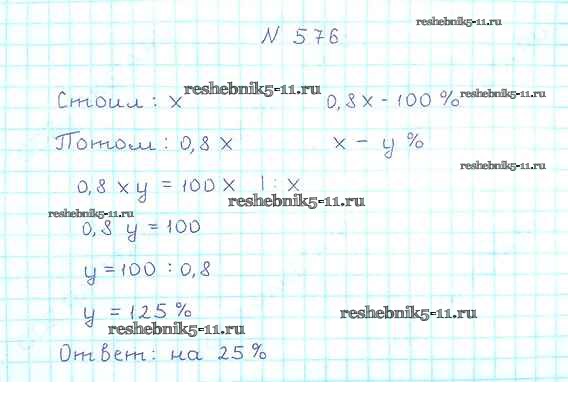 N 576
reshebnik5-11.ru
Стоил: x reshebnik5-11.ru 0,8x - 100 % reshebnik5-11.ru
Потом: 0,8 x x - y %
reshebnik5-11.ru
0,8 x y = 100 x | : x
reshebnik5-11.ru
reshebnik5-11.ru
0,8 y = 100
y = 100 : 0,8
y = 125 %
reshebnik5-11.ru
reshebnik5-11.ru
Ответ: на 25 %